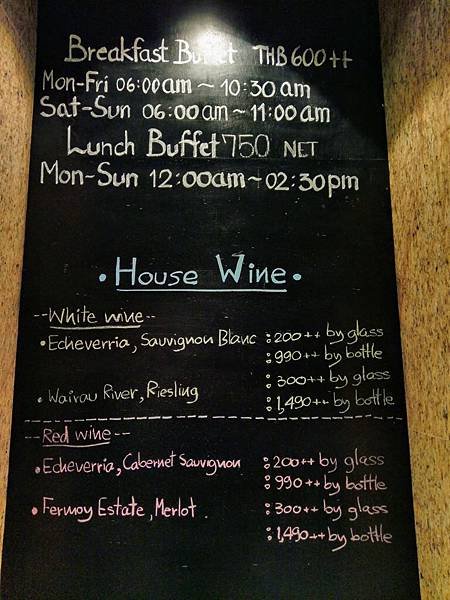 Breakfast Buffet THB 600++
Mon-Fri 06:00am ~ 10:30 am
Sat-Sun 06:00am ~ 11:00am
Lunch Buffet 750 NET
Mon-Sun 12:00am ~ 02:30pm
• House Wine •
--White wine--
• Echeverria, Sauvignon Blanc : 200++ by glass
: 990++ by bottle
: 300++ by glass
• Wairau River, Riesling : 1,490++ by bottle
--Red wine--
• Echeverria, Cabernet Sauvignon : 200++ by glass
: 990++ by bottle
• Fermoy Estate, Merlot . : 300++ by glass
: 1,490++ by bottle